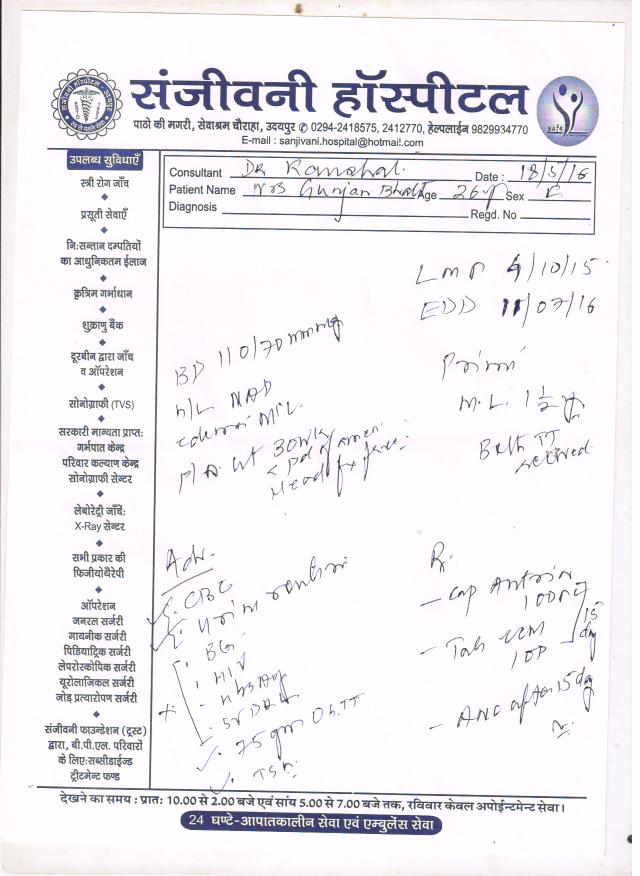 संजीवनी हॉस्पीटल
पाठो की मगरी, सेवाश्रम चौराहा, उदयपुर ✆ 0294-2418575, 2412770, हेल्पलाईन 9829934770
E-mail : sanjivani.hospital@hotmail.com
safe
उपलब्ध सुविधाएँ
स्त्री रोग जाँच
प्रसूती सेवाएँ
नि:सन्तान दम्पतियों
का आधुनिकतम ईलाज
क्रत्रिम गर्भाधान
शुक्राणु बैंक
दूरबीन द्वारा जाँच
व ऑपरेशन
सोनोग्राफी (TVS)
सरकारी मान्यता प्राप्त:
गर्भपात केन्द्र
परिवार कल्याण केन्द्र
सोनोग्राफी सेन्टर
लेबोरेट्री जाँचें:
X-Ray सेन्टर
सभी प्रकार की
फिजीयोथैरेपी
ऑपरेशन
जनरल सर्जरी
गायनीक सर्जरी
पिडियाट्रिक सर्जरी
लेपरोस्कोपिक सर्जरी
यूरोलाजिकल सर्जरी
जोड़ प्रत्यारोपण सर्जरी
संजीवनी फाउन्डेशन (ट्रस्ट)
द्वारा, बी.पी.एल. परिवारों
के लिए:सब्सीडाईज्ड
ट्रीटमेन्ट फण्ड
Consultant Dr Date : 18/5/16
Patient Name Mrs Gunjan Bhatt Age 26 yr Sex F
Diagnosis Regd. No
LMP 4/10/15
EDD 11/07/16
BP 110/70 mmHg
H/L NAD
P/A Ut 30 wk
Head
Primi
M.L. 1½ yr
Both TT
received
Adv.
CBC
Urine routine
BG
HIV
HbsAg
VDRL
75 gm
TSH
Rx
- Cap
100
- Tab
15 day
- ANC after 15 day
देखने का समय : प्रात: 10.00 से 2.00 बजे एवं सांय 5.00 से 7.00 बजे तक, रविवार केवल अपोईन्टमेन्ट सेवा।
24 घण्टे-आपातकालीन सेवा एवं एम्बुलेंस सेवा